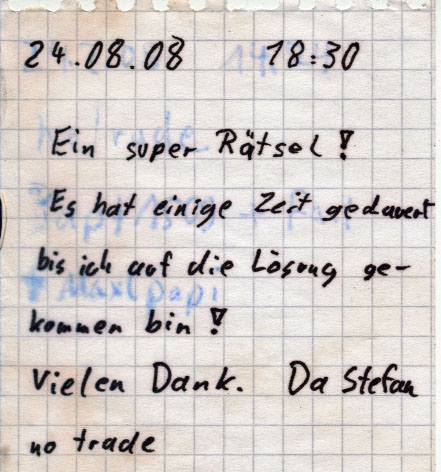 24.08.08 18:30
Ein super Rätsel!
Es hat einige Zeit gedauert
bis ich auf die Lösung ge-
kommen bin!
Vielen Dank. Da Stefan
no trade